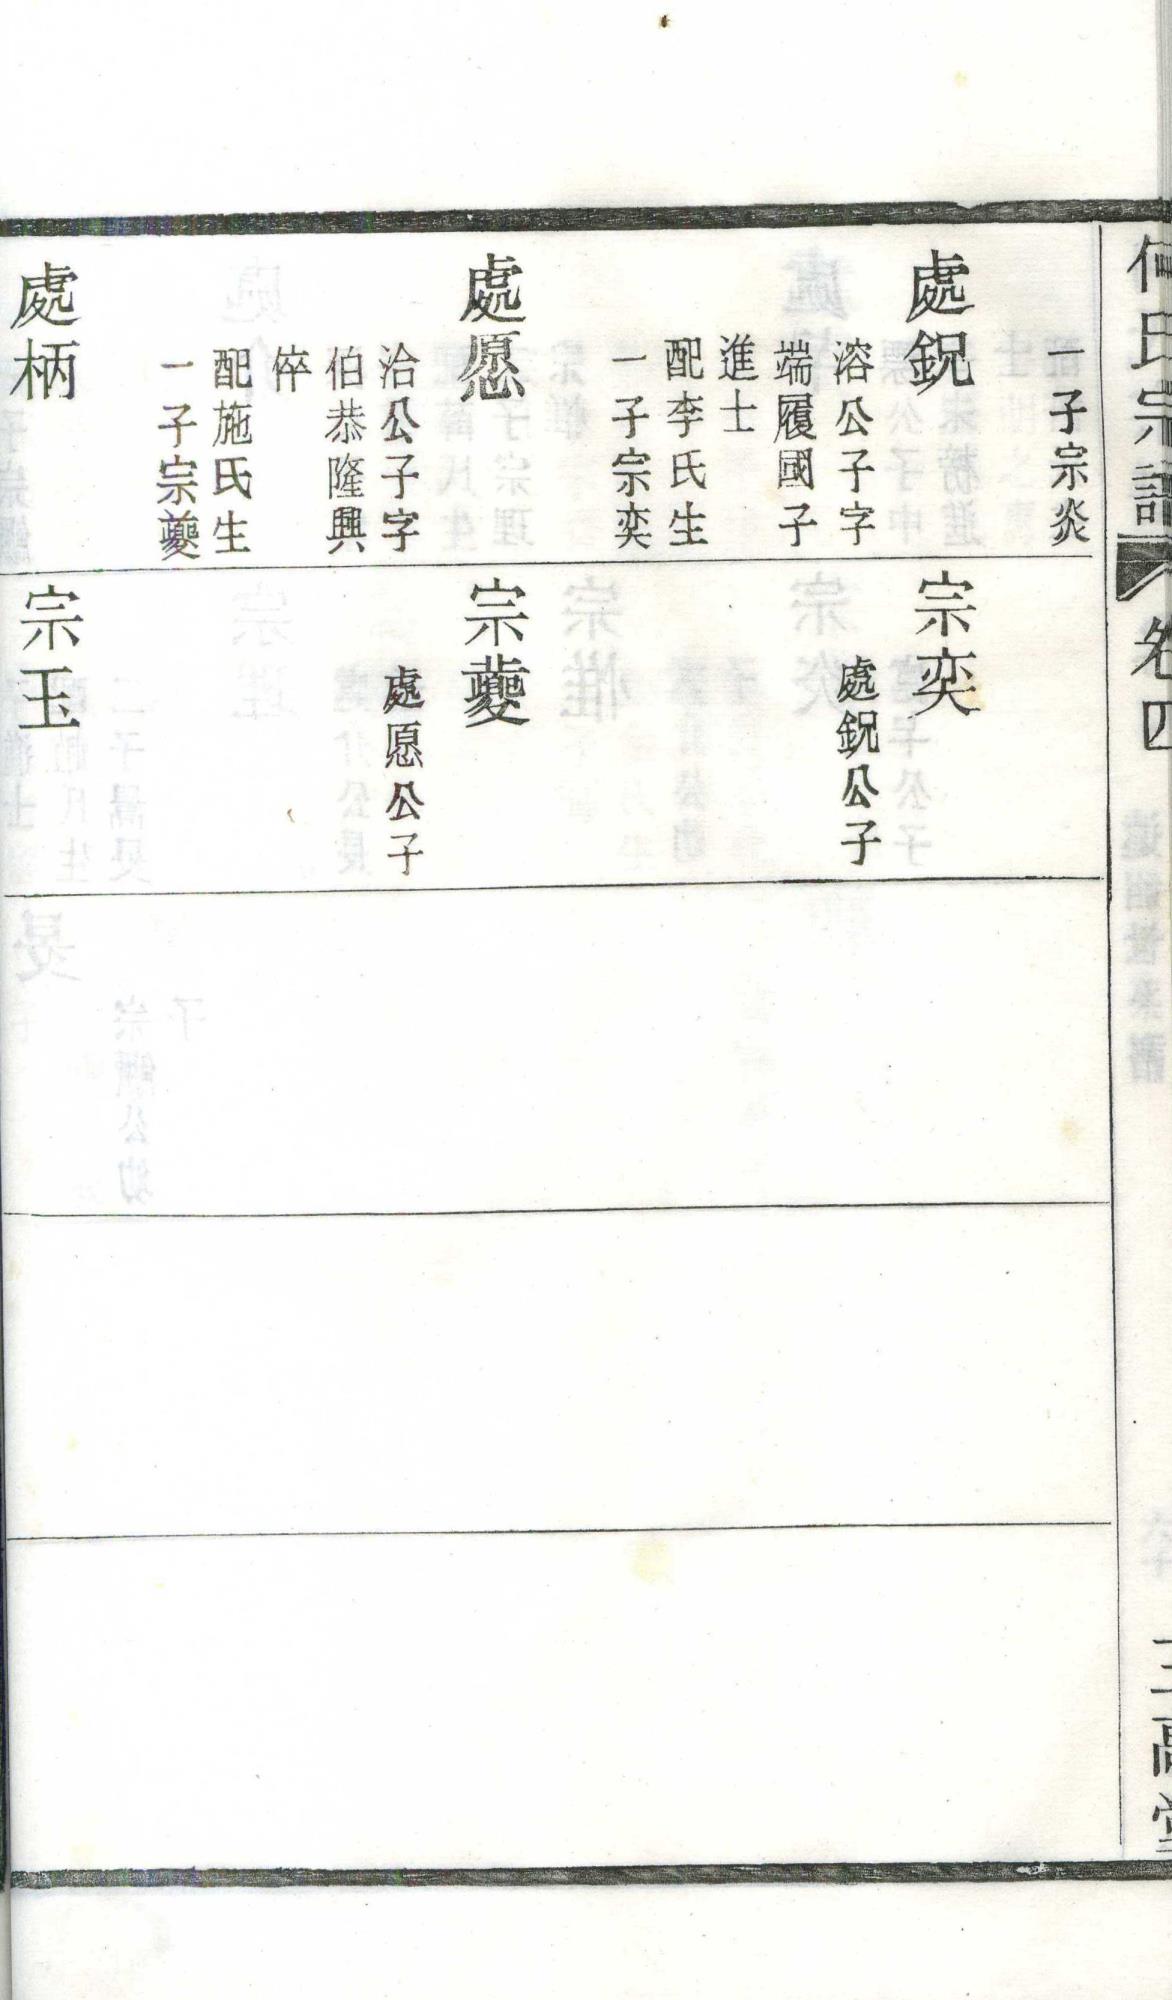 何氏宗譜
卷四
三高堂
一子宗炎
處鋭
溶公子字
端履國子
進士
配李氏生
一子宗奕
處愿
洽公子字
伯恭隆興
倅
配施氏生
一子宗夔
處柄
宗奕
處鋭公子
宗夔
處愿公子
宗玉